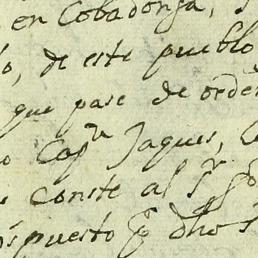 en Cobadonga,
o, de este pueblo
que pase de orden
o Capn Jaques,
conste al Sr
puesto pr dho